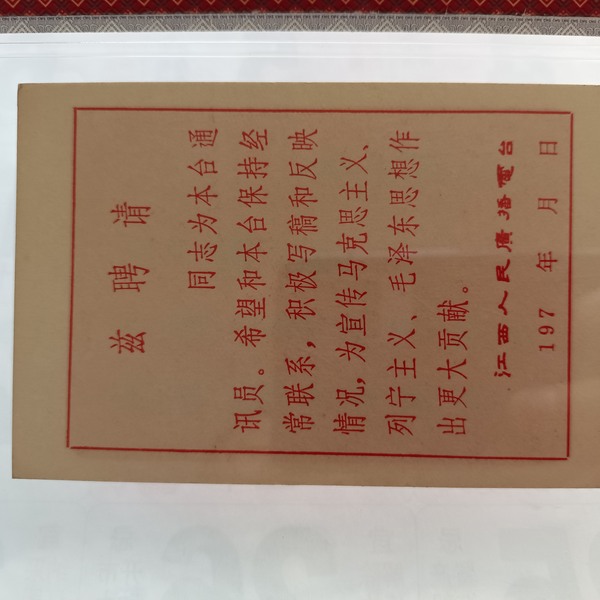 兹聘请
同志为本台通
讯员。希望和本台保持经
常联系，积极写稿和反映
情况，为宣传马克思主义、
列宁主义、毛泽东思想作
出更大贡献。
江西人民廣播電台
197 年 月 日